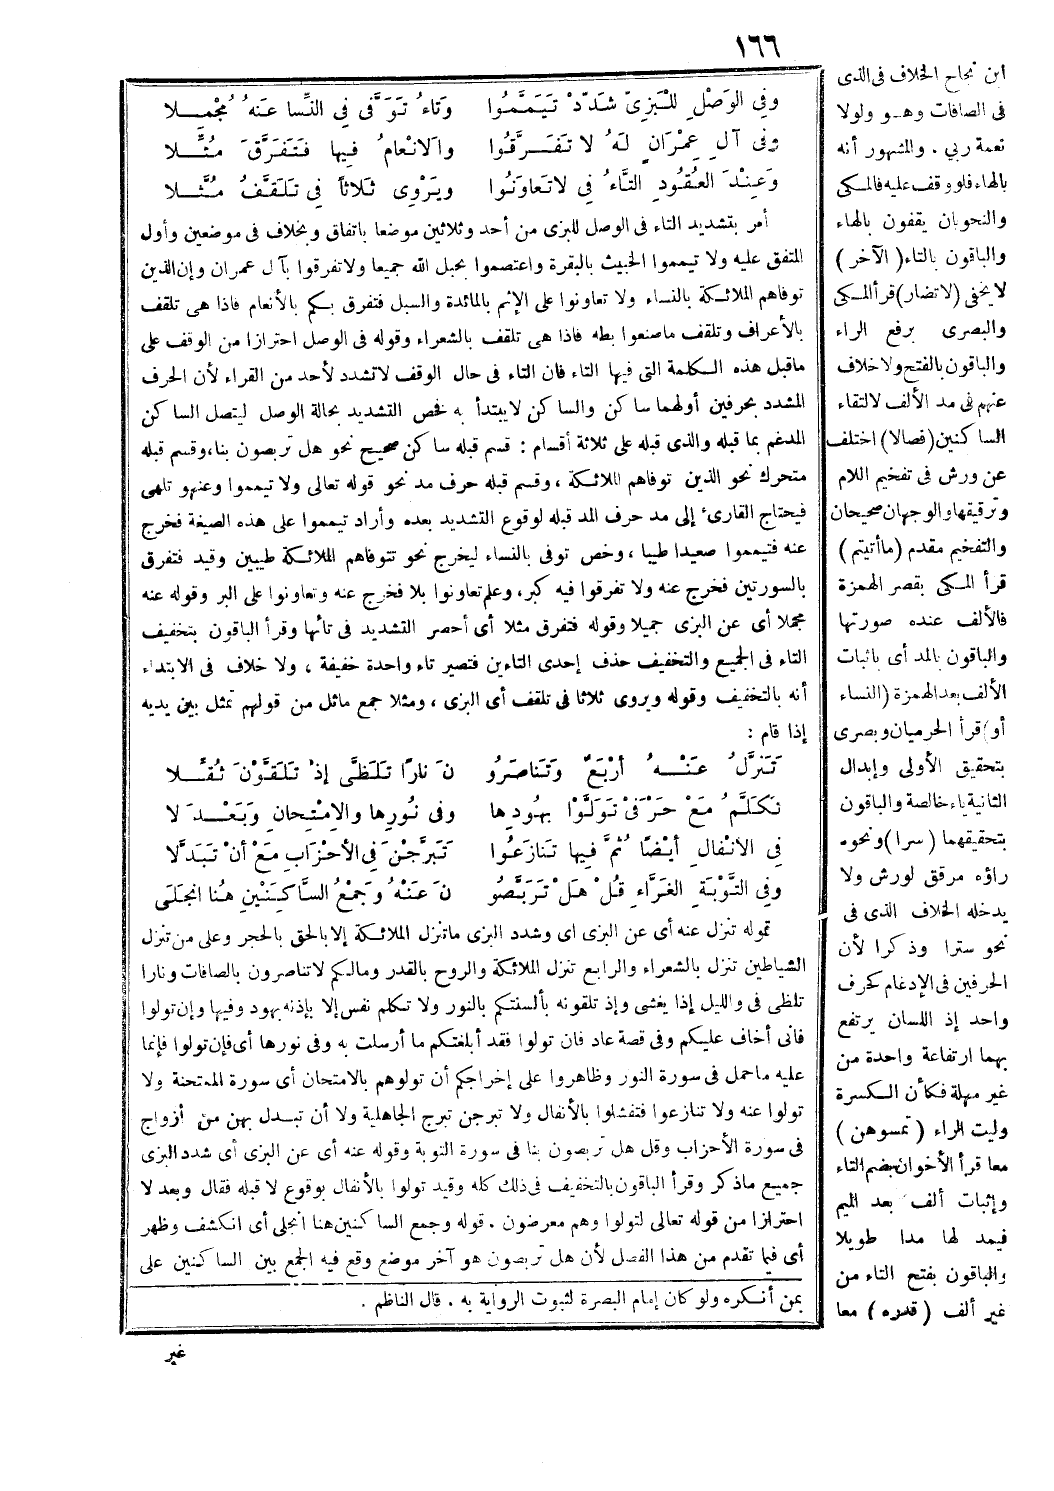 ١٦٦
وفي الوَصْلِ للْبَزِىّ شَدِّدْ تَيَمَّمُوا وَتَاءُ تَوَفَّى فِي النِّسا عَنهُ مُجْمِلا
وفى آلِ عِمْرَانٍ لَهُ لا تفَرَّقُوا والانْعامُ فِيها فَتَفَرَّقَ مُثِّلا
وَعِنْدَ العُقُودِ التَّاءُ فِي لاتَعاوَنُوا ويَرْوِى ثَلاثاً فِي تَلَقَّفُ مُثَّلا
أمر بتشديد التاء فى الوصل للبزى من أحد وثلاثين موضعا باتفاق وبخلاف فى موضعين وأول
المتفق عليه ولا تيمموا الخبيث بالبقرة واعتصموا بحبل الله جميعا ولا تفرقوا بآ ل عمران وإن الذين
توفاهم الملائكة بالنساء ولا تعاونوا على الإثم بالمائدة والسبل فتفرق بكم بالأنعام فاذا هى تلقف
بالأعراف وتلقف ماصنعوا بطه فاذا هى تلقف بالشعراء وقوله فى الوصل احترازا من الوقف على
ماقبل هذه الكلمة التى فيها التاء فان التاء فى حال الوقف لاتشدد لأحد من القراء لأن الحرف
المشدد بحرفين أولهما ساكن والساكن لايبتدأ به فخص التشديد بحالة الوصل ليتصل الساكن
المدغم بما قبله والذى قبله على ثلاثة أقسام : قسم قبله ساكن صحيح نحو هل تربصون بنا، وقسم قبله
متحرك نحو الذين توفاهم الملائكة ، وقسم قبله حرف مد نحو قوله تعالى ولا تيمموا وعنهو تلهى
فيحتاج القارئ إلى مد حرف المد قبله لوقوع التشديد بعده وأراد تيمموا على هذه الصيغة فخرج
عنه فتيمموا صعيدا طيبا ، وخص توفى بالنساء ليخرج نحو تتوفاهم الملائكة طيبين وقيد فتفرق
بالسورتين فخرج عنه ولا تفرقوا فيه كبر، وعلم تعاونوا بلا فخرج عنه وتعاونوا على البر وقوله عنه
مجملا أى عن البزى جميلا وقوله فتفرق مثلا أى أحصر التشديد فى تائها وقرأ الباقون بتخفيف
التاء فى الجميع والتخفيف حذف إحدى التاءين فتصير تاء واحدة خفيفة ، ولا خلاف فى الابتداء
أنه بالتخفيف وقوله ويروى ثلاثا فى تلقف أى البزى ، ومثلا جمع ماثل من قولهم تمثل بين يديه
إذا قام :
تَنَزَّلُ عَنْهُ أرْبَعٌ وَتَناصَرُو نَ نارًا تَلَظَّى إذْ تَلَقَّوْنَ ثُقِّلا
تَكَلَّمُ مَعْ حَرْفَىْ تَوَلَّوْا بِهُودِها وفى نُورِها والِامْتِحانِ وَبَعْدَ لا
فِي الانْفالِ أيْضًا ثُمَّ فِيها تَنازَعُوا تَبَرَّجْنَ فِي الأحْزَابِ مَعْ أنْ تَبَدَّلا
وَفِي التَّوْبَةِ الغَرَّاءِ قُلْ هَلْ تَرَبَّصُو نَ عَنْهُ وَجَمْعُ السَّاكِنَيْنِ هُنا انجَلَى
قوله تنزل عنه أى عن البزى اى وشدد البزى ماتنزل الملائكة إلا بالحق بالحجر وعلى من تنزل
الشياطين تنزل بالشعراء والرابع تنزل الملائكة والروح بالقدر ومالكم لاتناصرون بالصافات ونارا
تلظى فى والليل إذا يغشى وإذ تلقونه بألسنتكم بالنور ولا تكلم نفس إلا بإذنه بهود وفيها وإن تولوا
فانى أخاف عليكم وفى قصة عاد فان تولوا فقد أبلغتكم ما أرسلت به وفى نورها أى فإن تولوا فإنما
عليه ماحمل فى سورة النور وظاهروا على إخراجكم أن تولوهم بالامتحان أى سورة الممتحنة ولا
تولوا عنه ولا تنازعوا فتفشلوا بالأنفال ولا تبرجن تبرج الجاهلية ولا أن تبدل بهن من أزواج
فى سورة الأحزاب وقل هل تربصون بنا فى سورة التوبة وقوله عنه أى عن البزى أى شدد البزى
جميع ماذكر وقرأ الباقون بالتخفيف فى ذلك كله وقيد تولوا بالأنفال بوقوع لا قبله فقال وبعد لا
احترازا من قوله تعالى لتولوا وهم معرضون . قوله وجمع الساكنين هنا انجلى أى انكشف وظهر
أى فيما تقدم من هذا الفصل لأن هل تربصون هو آخر موضع وقع فيه الجمع بين الساكنين على
بمن أنكره ولو كان إمام البصرة لثبوت الرواية به . قال الناظم .
غير
ابن نجاح الخلاف فى الذى
فى الصافات وهو ولولا
نعمة ربى . والمشهور أنه
بالهاء فلو وقف عليه فالمكى
والنحويان يقفون بالهاء
والباقون بالتاء (الآخر)
لا يخفى (لا تضار) قرأ المكى
والبصرى برفع الراء
والباقون بالفتح ولا خلاف
عنهم فى مد الألف لالتقاء
الساكنين (فصالا) اختلف
عن ورش فى تفخيم اللام
وترقيقها والوجهان صحيحان
والتفخيم مقدم (ماأتيتم)
قرأ المكى بقصر الهمزة
فالألف عنده صورتها
والباقون بالمد أى باثبات
الألف بعد الهمزة (النساء
أو) قرأ الحرميان وبصرى
بتحقيق الأولى وإبدال
الثانية ياء خالصة والباقون
بتحقيقهما (سرا) ونحوه
راؤه مرقق لورش ولا
يدخله الخلاف الذى فى
نحو سترا وذكرا لأن
الحرفين فى الإدغام كحرف
واحد إذ اللسان يرتفع
بهما ارتفاعة واحدة من
غير مهلة فكأن الكسرة
وليت الراء (تمسوهن)
معا قرأ الأخوان بضم التاء
وإثبات ألف بعد الميم
فيمد لها مدا طويلا
والباقون بفتح التاء من
غير ألف (قدره) معا